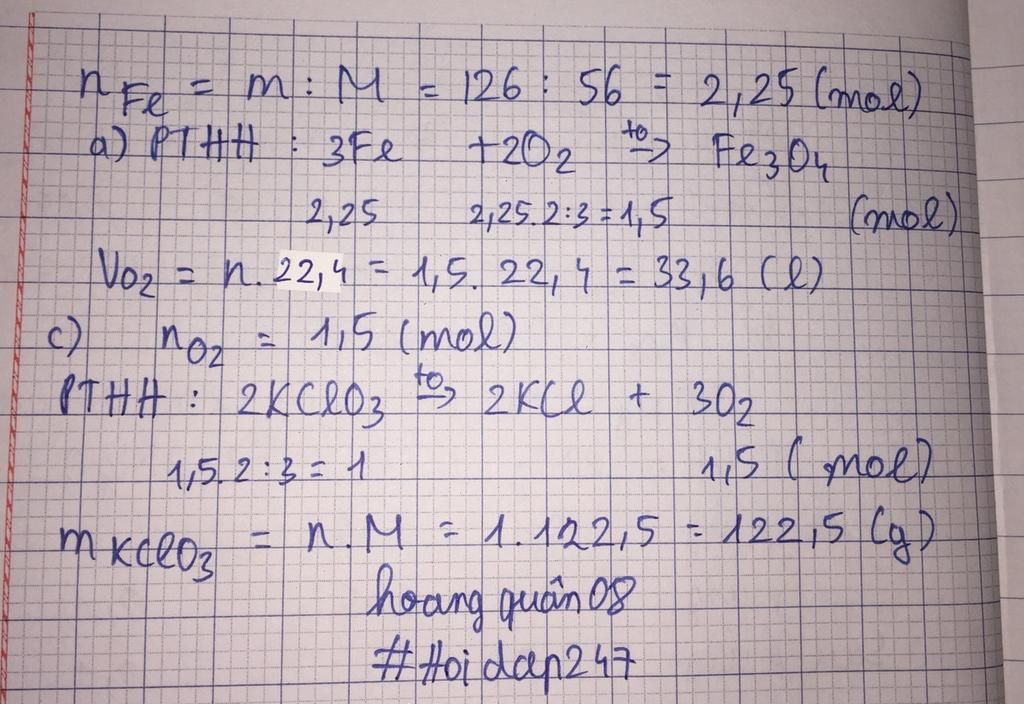 nFe = m : M = 126 : 56 = 2,25 (mol)
a) PTHH : 3Fe +2O2 to→ Fe3O4
2,25 2,25.2:3=1,5 (mol)
VO2 = n.22,4 = 1,5.22,4 = 33,6 (l)
c) nO2 = 1,5 (mol)
PTHH : 2KClO3 to→ 2KCl + 3O2
1,5.2:3=1 1,5 (mol)
mKClO3 = n.M = 1.122,5 = 122,5 (g)
hoangquân08
#Hoidap247